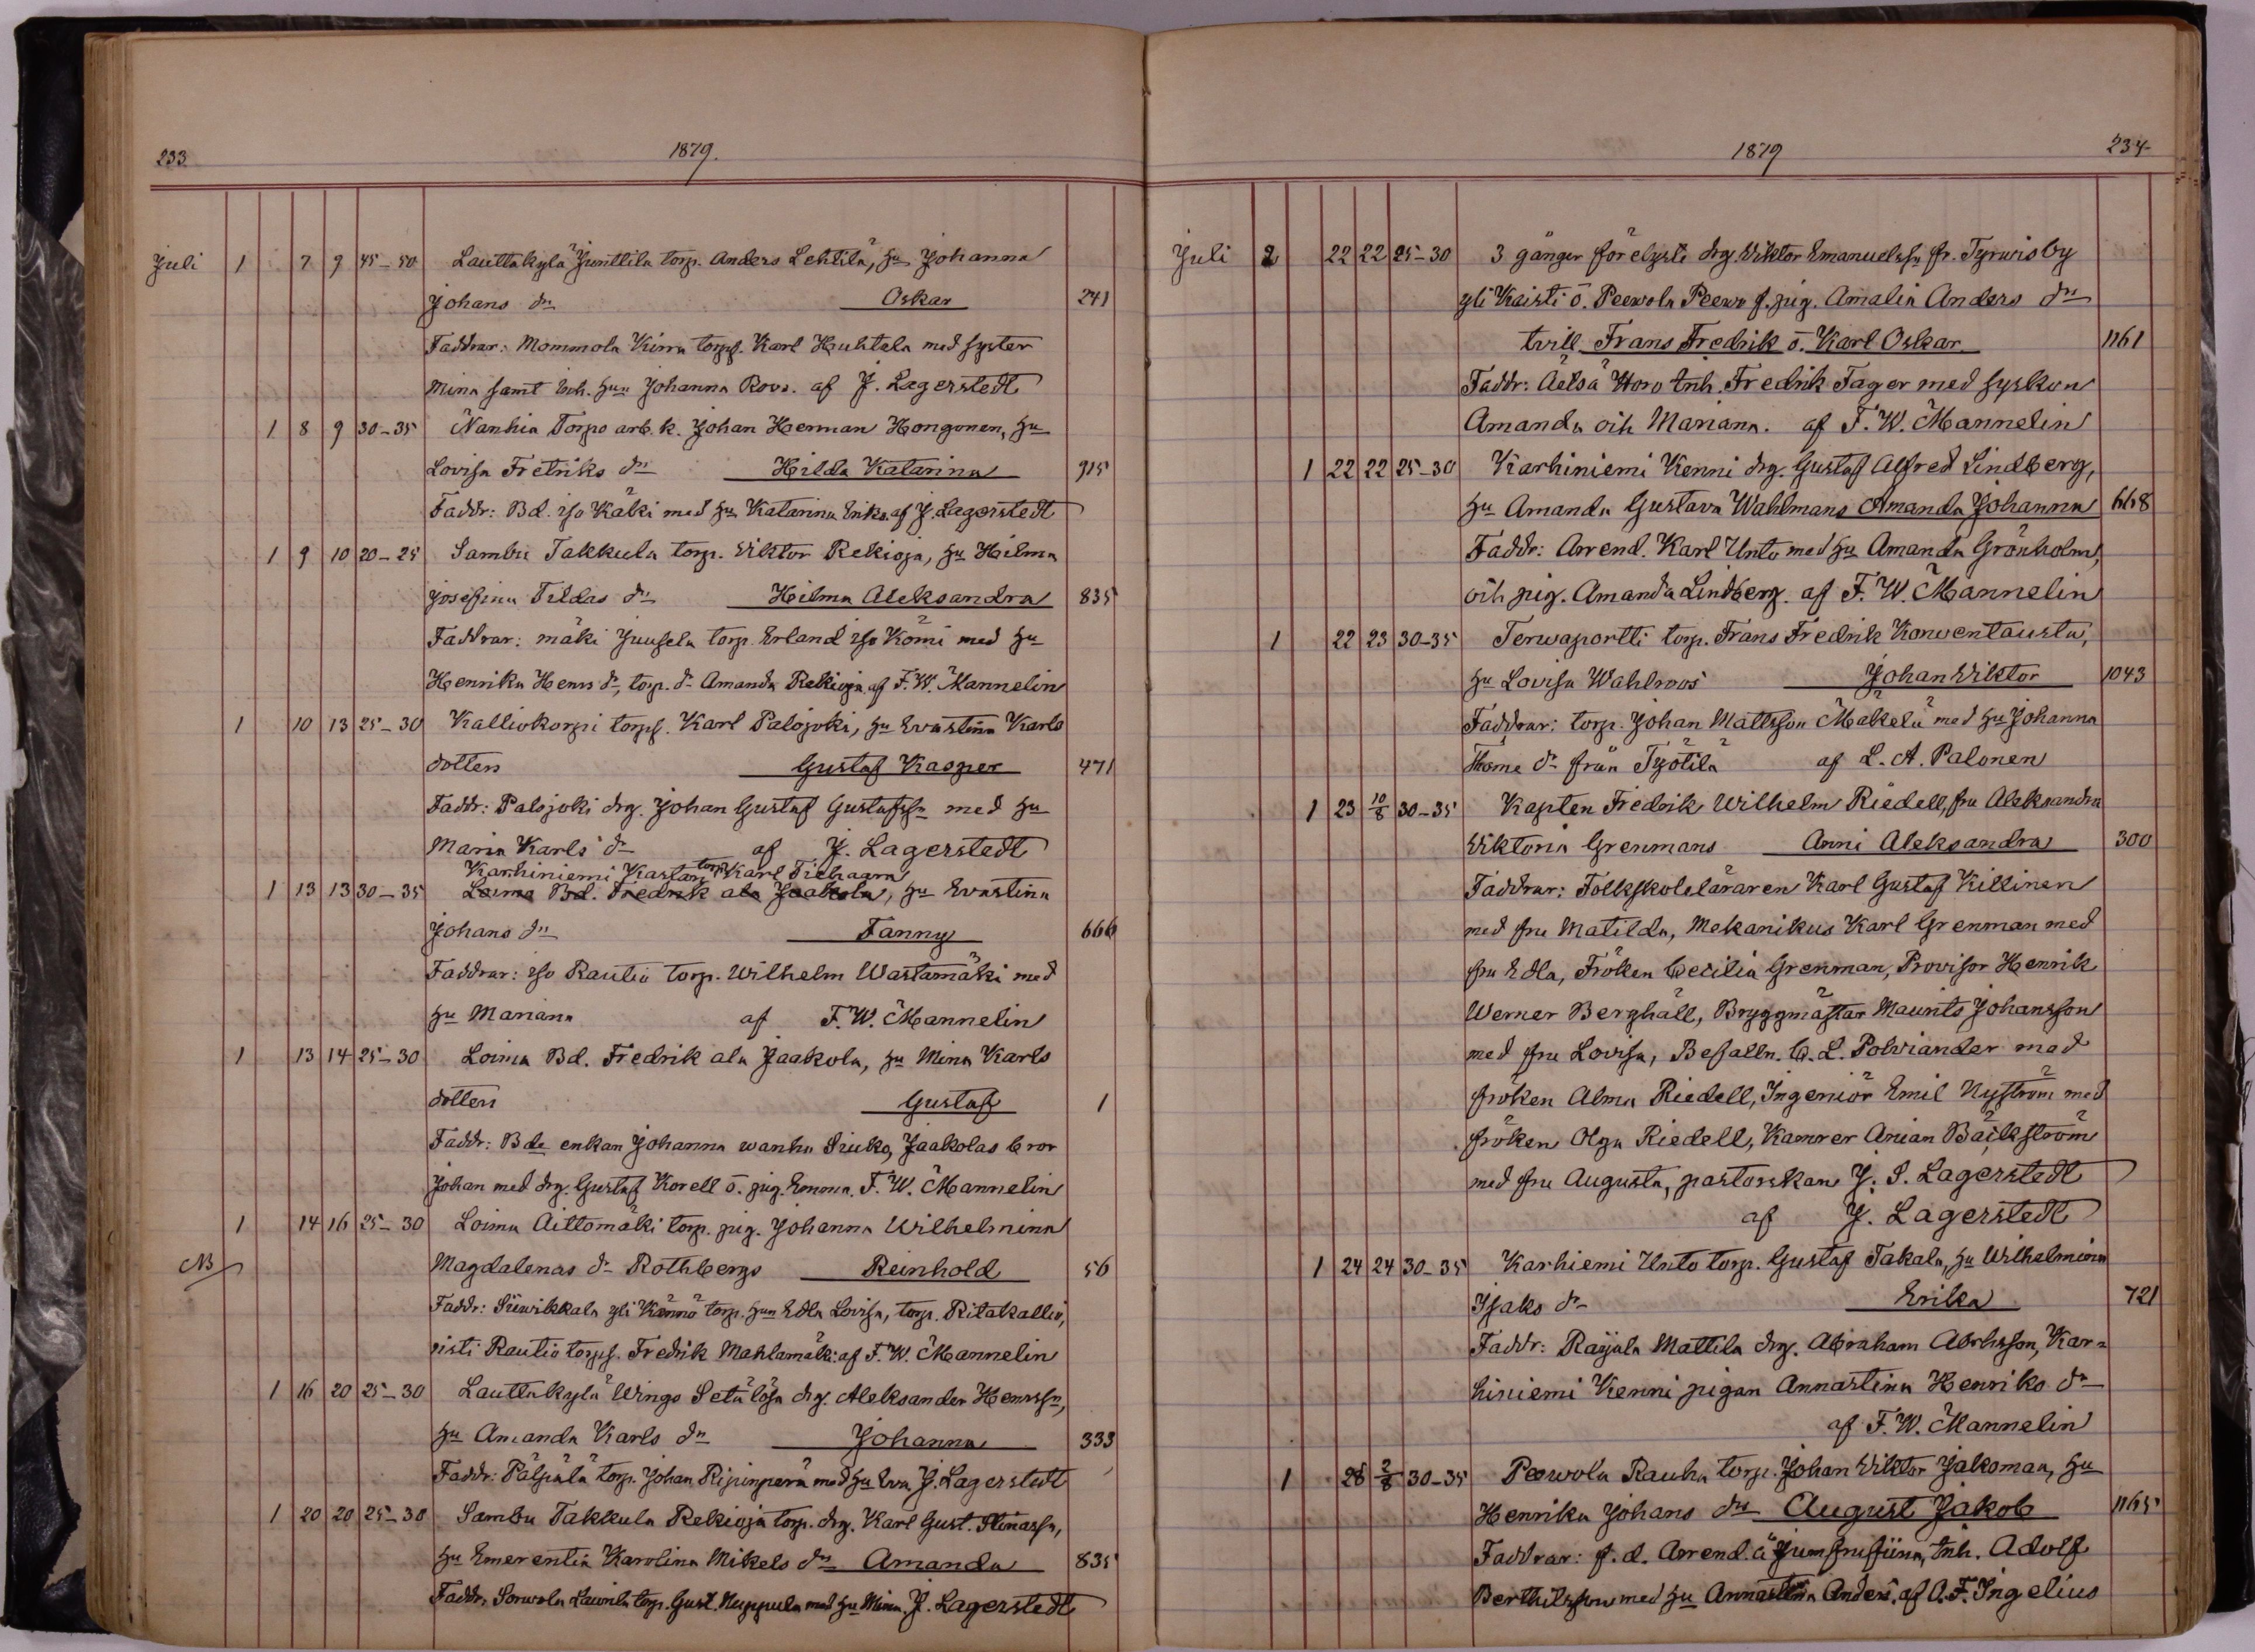 233.
1879.
Juli 1 7 9 45-50 Lauttakylä Junttila torp. Anders Lehtilä, hu Johanna
Johans dr Oskar 241
Faddrar: Mommola Kirra torpf. Karl Huhtala med syster
Mina samt inh. hun Johanna Rovs. af J. Lagerstedt
1 8 9 30-35 Nanhia Torpo arb. k. Johan Herman Hongonen, hu
Lovisa Fretriks dr Hilda Katarina 915
Faddr: Bd. iso Käki med hu Katarina Eriks. af J. Lagerstedt
1 9 10 20-25 Sambu Takkula torp. Viktor Rekioja, hu Hilma
Josefina Tildas dr Hilma Aleksandra 835
Faddrar: mäki Juusela torp. Erland iso Komi med hu
Henrika Henrs dr, torp. dr Amanda Rekioja af F. W. Mannelin
1 10 13 25-30 Kalliokorpi torpf. Karl Palojoki, hu Evastina Karls
dotters Gustaf Kasper 471
Faddr: Palojoki drg. Johan Gustaf Gustafssn med hu
Maria Karls dr af J. Lagerstedt
Karhiniemi Kastari torp. Karl Tiehaara
1 13 13 30-35 Loima Bd. Fredrik ala Jaakola, hu Evastina
Johans dr Fanny 666
Faddrar: iso Rautio torp. Wilhelm Wastamäki med
hu Mariana af F. W. Mannelin
1 13 14 25-30 Loima Bd. Fredrik ala Jaakola, hu Mina Karls
dotters Gustaf 1
Faddr: Bde enkan Johanna wanha Siuko, Jaakolas bror
Johan med drg. Gustaf Korell o. pig. Emma. F. W. Mannelin
1 14 16 25-30 Loima Aittomäki torp. pig. Johanna Wilhelmina
NB Magdalenas dr Rothbergs Reinhold 56
Faddr: Siewikkala yli Kännö torp. hun Edla Lovisa, torp. Ritakallio,
risti Rautio torpf. Fredrik Mahlamäki af F. W. Mannelin
1 16 20 25-30 Lauttakylä Wingo Setälösa drg. Aleksander Henrssn,
hu Amanda Karls dr Johanna 333
Faddr: Pälpälä torp. Johan Ripinperä med hu Eva J. Lagerstedt
1 20 20 25-30 Sambu Takkula Rekioja torp. drg. Karl Gust.
hu Emerentia Karolina Mikels dr Amanda 835
Faddr. Sorwola Laurila torp. Gust. Nuppula med hu Mina. J. Lagerstedt
1879
234
Juli 2 22 22 25-30 3 gånger förelyste drg. Viktor Emanuelssn fr. Tyrwis by
yli Kaisti o. Peewola Peewo f. pig. Amalia Anders dr
tvill. Frans Fredrik o. Karl Oskar 1161
Faddr: Äetsä Horo tnh. Fredrik Fager med syskon
Amanda och Mariana. af F. W. Mannelin
1 22 22 25-30 Karhiniemi Kenni drg. Gustaf Alfred Lindberg,
hu Amanda Gustava Wahlmans Amanda Johanna 668
Faddr: Arrend. Karl Unto med hu Amanda Grönholm,
och pig. Amanda Lindberg. af F. W. Mannelin
1 22 23 30-35 Terwaportti torp. Frans Fredrik Korwentausta,
hu Lovisa Wahlroos Johan Viktor 1043
Faddrar: torp. Johan Mattsson Mäkelä med hu Johanna
Thome dr från Työtilä af L. A. Palonen
1 23 10/8 30-35 Kapten Fredrik Wilhelm Riedell, fru Aleksandra
Viktoria Grenmans Anni Aleksandra 300
Faddrar: Folkskoleläraren Karl Gustaf Killinen
med fru Matilda, Mekanikus Karl Grenman med
fru Edla, Fröken Cecilia Grenman, Provisor Henrik
Werner Berghäll, Bryggmästar Maurits Johansson
med fru Lovisa, Befalln. C. L. Polviander med
fröken Alma Riedell, Ingeniör Emil Nyström med
fröken Olga Riedell, Kamrer Anian Bäckström
med fru Augusta, pastorskan J. S. Lagerstedt
af J. Lagerstedt
1 24 24 30-35 Karhiemi Unto torp. Gustaf Takala, hu Wilhelmina
Isaks dr Erika 721
Faddr: Raijala Mattila drg. Abraham Abrhsson, Kar=
hiniemi Kenni pigan Annastina Henriks dr
af F. W. Mannelin
1 28 2/8 30-35 Peowola Rauha torp. Johan Viktor Jakoman, hu
Henrika Johans drs August Jakob 1165
Faddrar: f. d. Arrend. å Jumfrusiina, tnh. Adolf
Berthilsson med hu Annastina Anders. af A. F. Ingelius